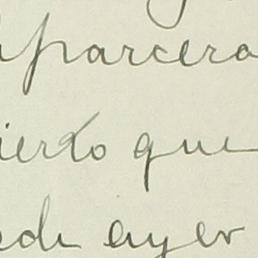 aparcero
ierto que
ede ayer